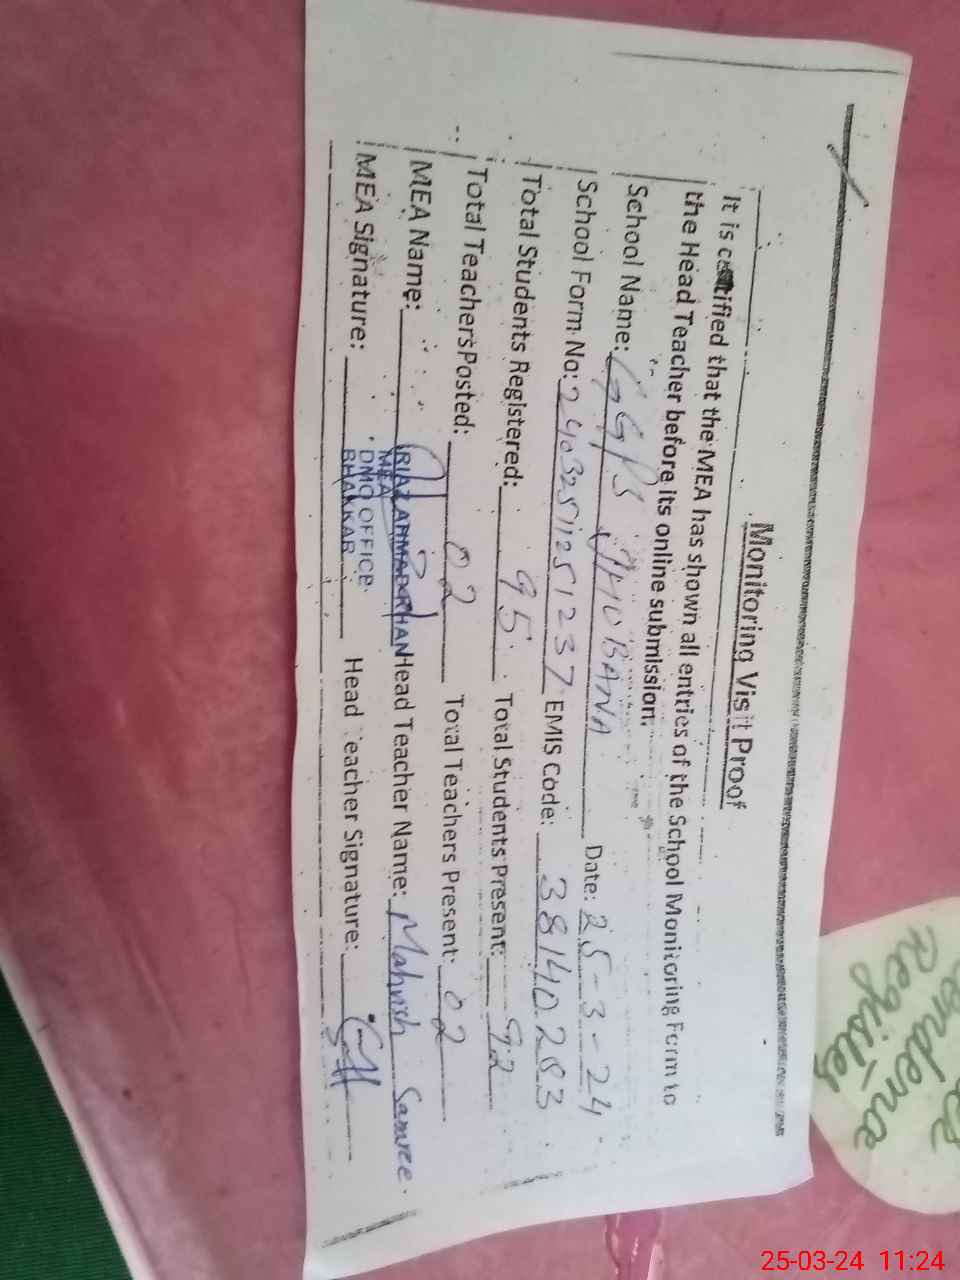 Monitoring Visit Proof
It is certified that the MEA has shown all entries of the School Monitoring Form to
the Head Teacher before its online submission.
School Name: GGPS JHOBANA Date: 25-3-24
School Form No: 24032511251237 EMIS Code: 38140283
Total Students Registered: 95 Total Students Present: 92
Total Teachers Posted: 02 Total Teachers Present: 02
MEA Name: RIAZ AHMAD KHAN Head Teacher Name: Mahvish
MEA
MEA Signature: DMO OFFICE Head Teacher Signature:
BHAKKAR
Register
25-03-24 11:24